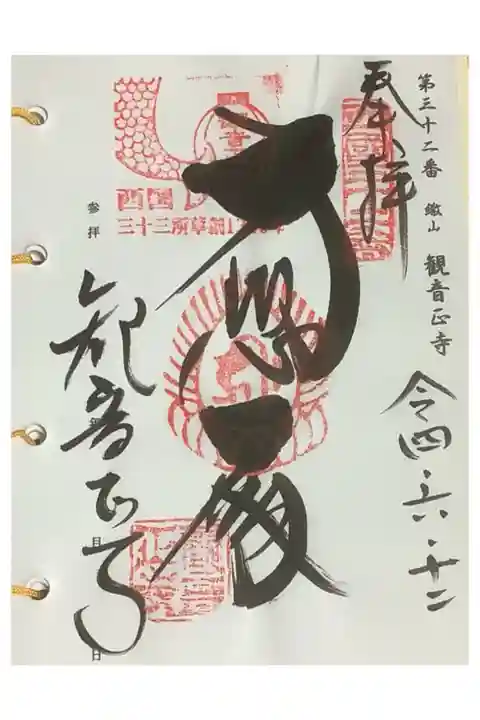 第三十二番 繖山 観音正寺
令四・六・十二
奉拝
大悲殿
西国
三十三所草創1
参拝
月
日
観音正寺